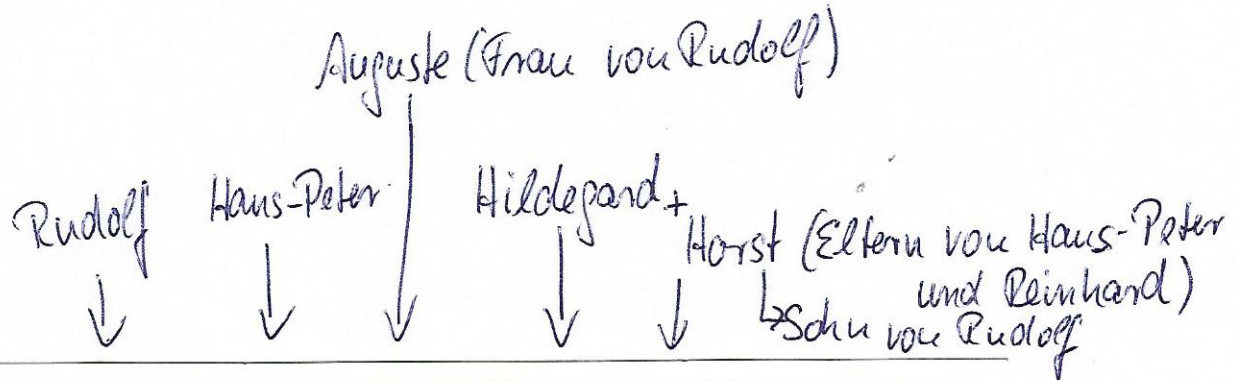 Auguste (Frau von Rudolf)
Rudolf Hans-Peter Hildegard +
Horst (Eltern von Hans-Peter
und Reinhard)
↳ Sohn von Rudolf